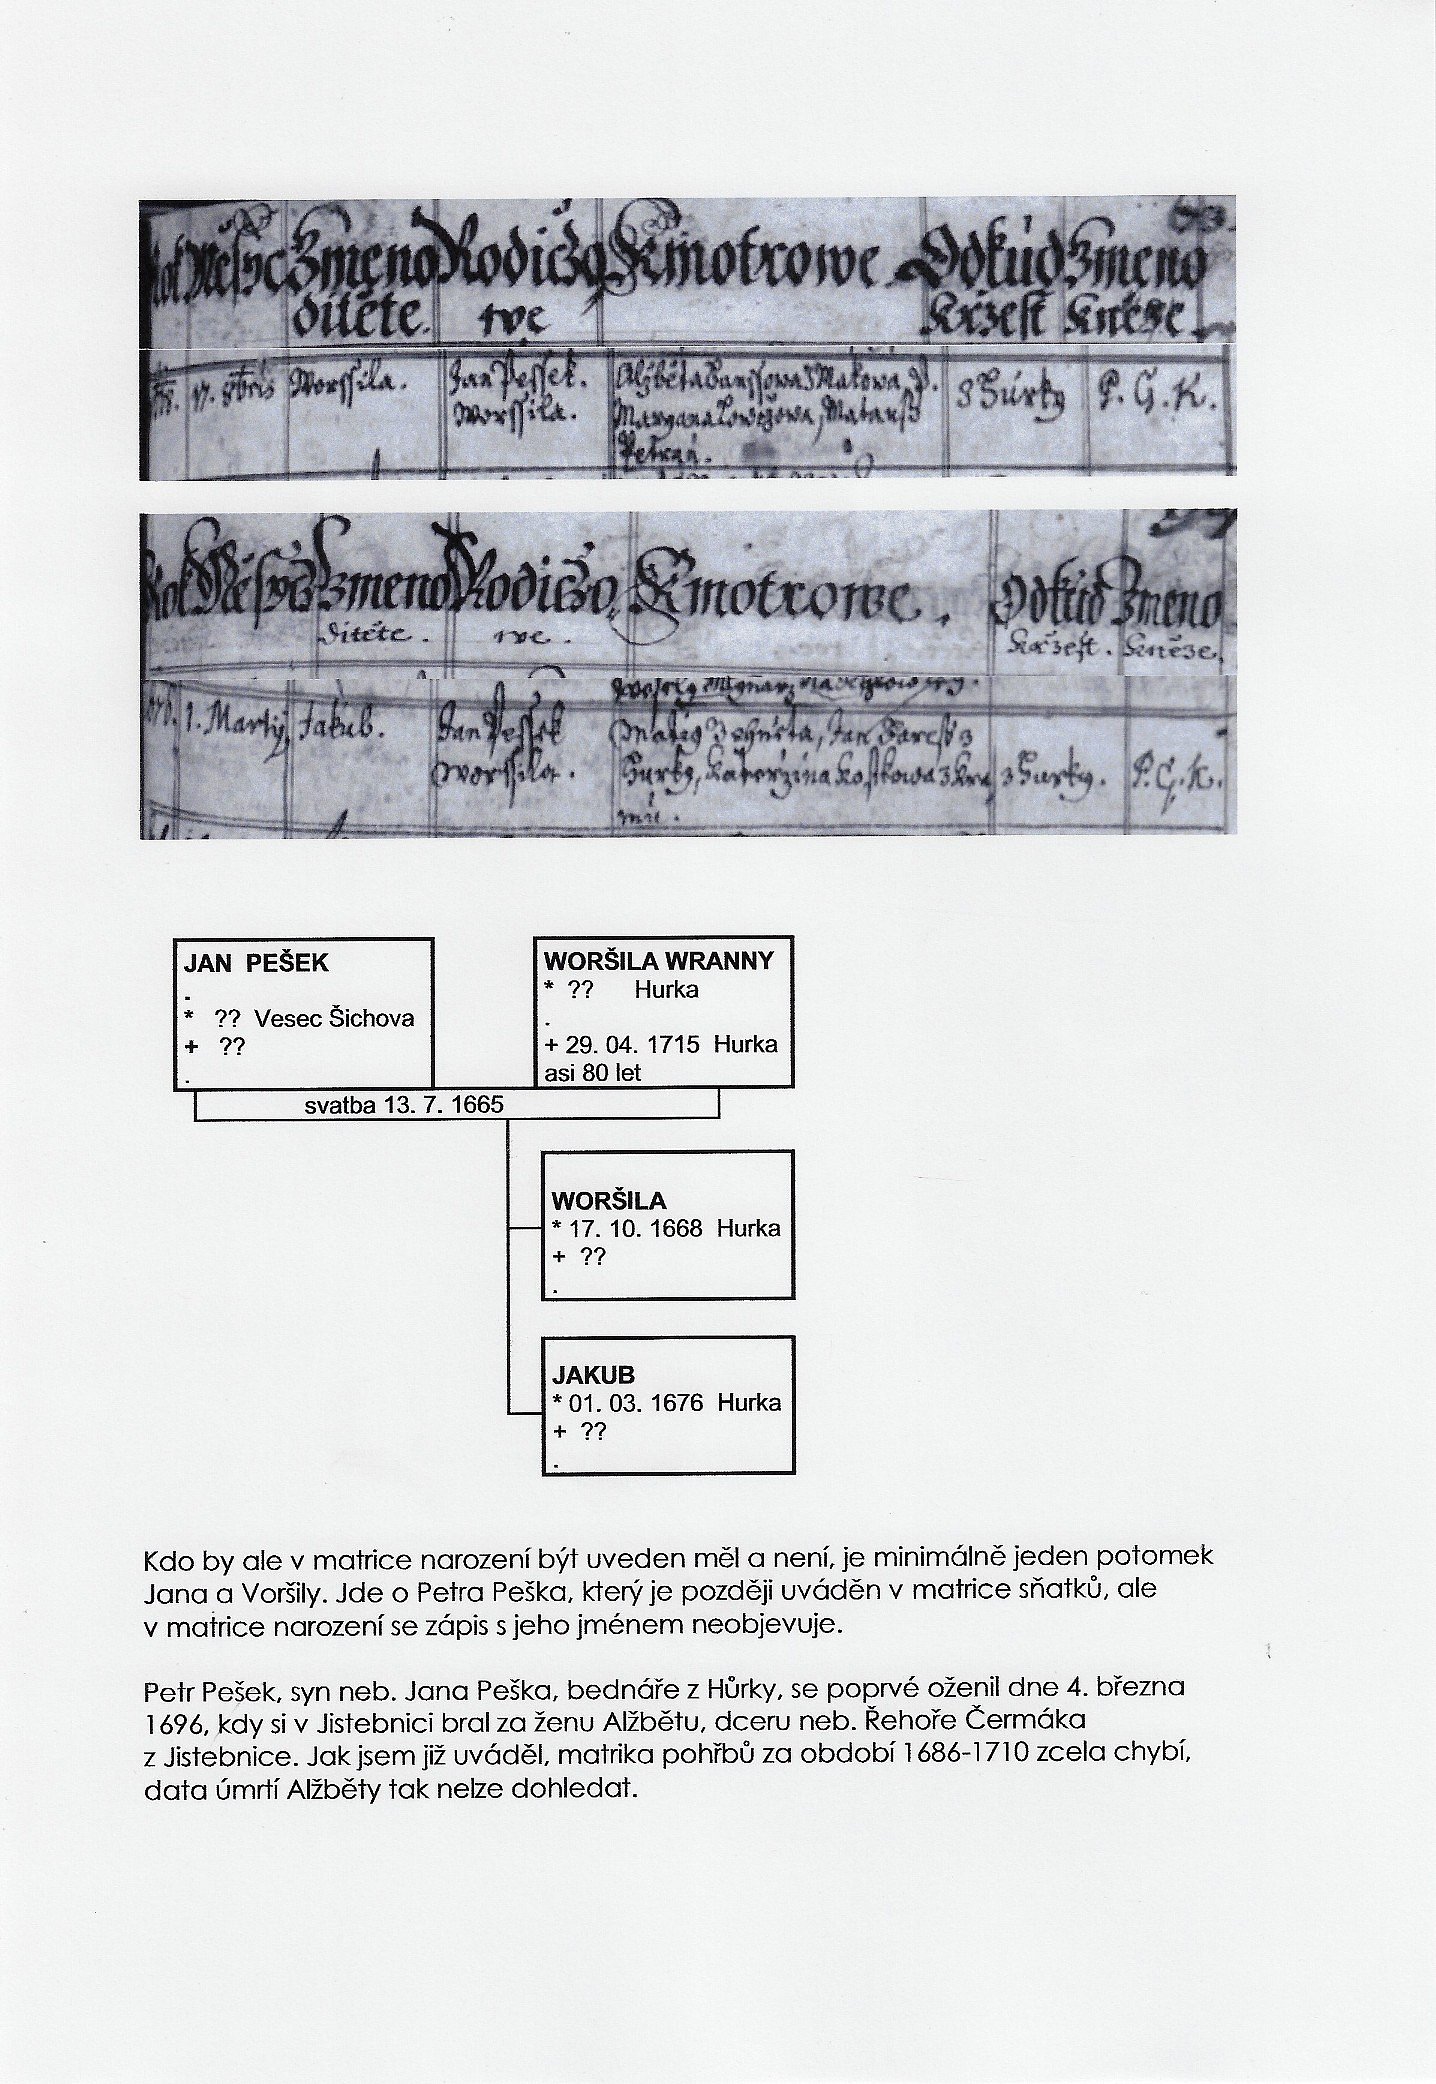 Měsyc Jmeno Rodičo Kmotrowe Odkud Jmeno
ditěte. we Křzest Kněze
17. 8bris Worssila. Jan Pessek. 3 Hurky P. G. K.
Worssila.
Rok Měsyc Jmeno Rodičo Kmotrowe. Odkud Jmeno
ditěte. we. Křzest. Kněze.
1. Martij Jakub. Jan Pessek
Worssila. Hurky, Kateržina Kostkowa 3 Hurky. P. G. K.
JAN PEŠEK
.
* ?? Vesec Šichova
+ ??
.
WORŠILA WRANNY
* ?? Hurka
.
+ 29. 04. 1715 Hurka
asi 80 let
svatba 13. 7. 1665
WORŠILA
* 17. 10. 1668 Hurka
+ ??
.
JAKUB
* 01. 03. 1676 Hurka
+ ??
.
Kdo by ale v matrice narození být uveden měl a není, je minimálně jeden potomek
Jana a Voršily. Jde o Petra Peška, který je později uváděn v matrice sňatků, ale
v matrice narození se zápis s jeho jménem neobjevuje.
Petr Pešek, syn neb. Jana Peška, bednáře z Hůrky, se poprvé oženil dne 4. března
1696, kdy si v Jistebnici bral za ženu Alžbětu, dceru neb. Řehoře Čermáka
z Jistebnice. Jak jsem již uváděl, matrika pohřbů za období 1686-1710 zcela chybí,
data úmrtí Alžběty tak nelze dohledat.